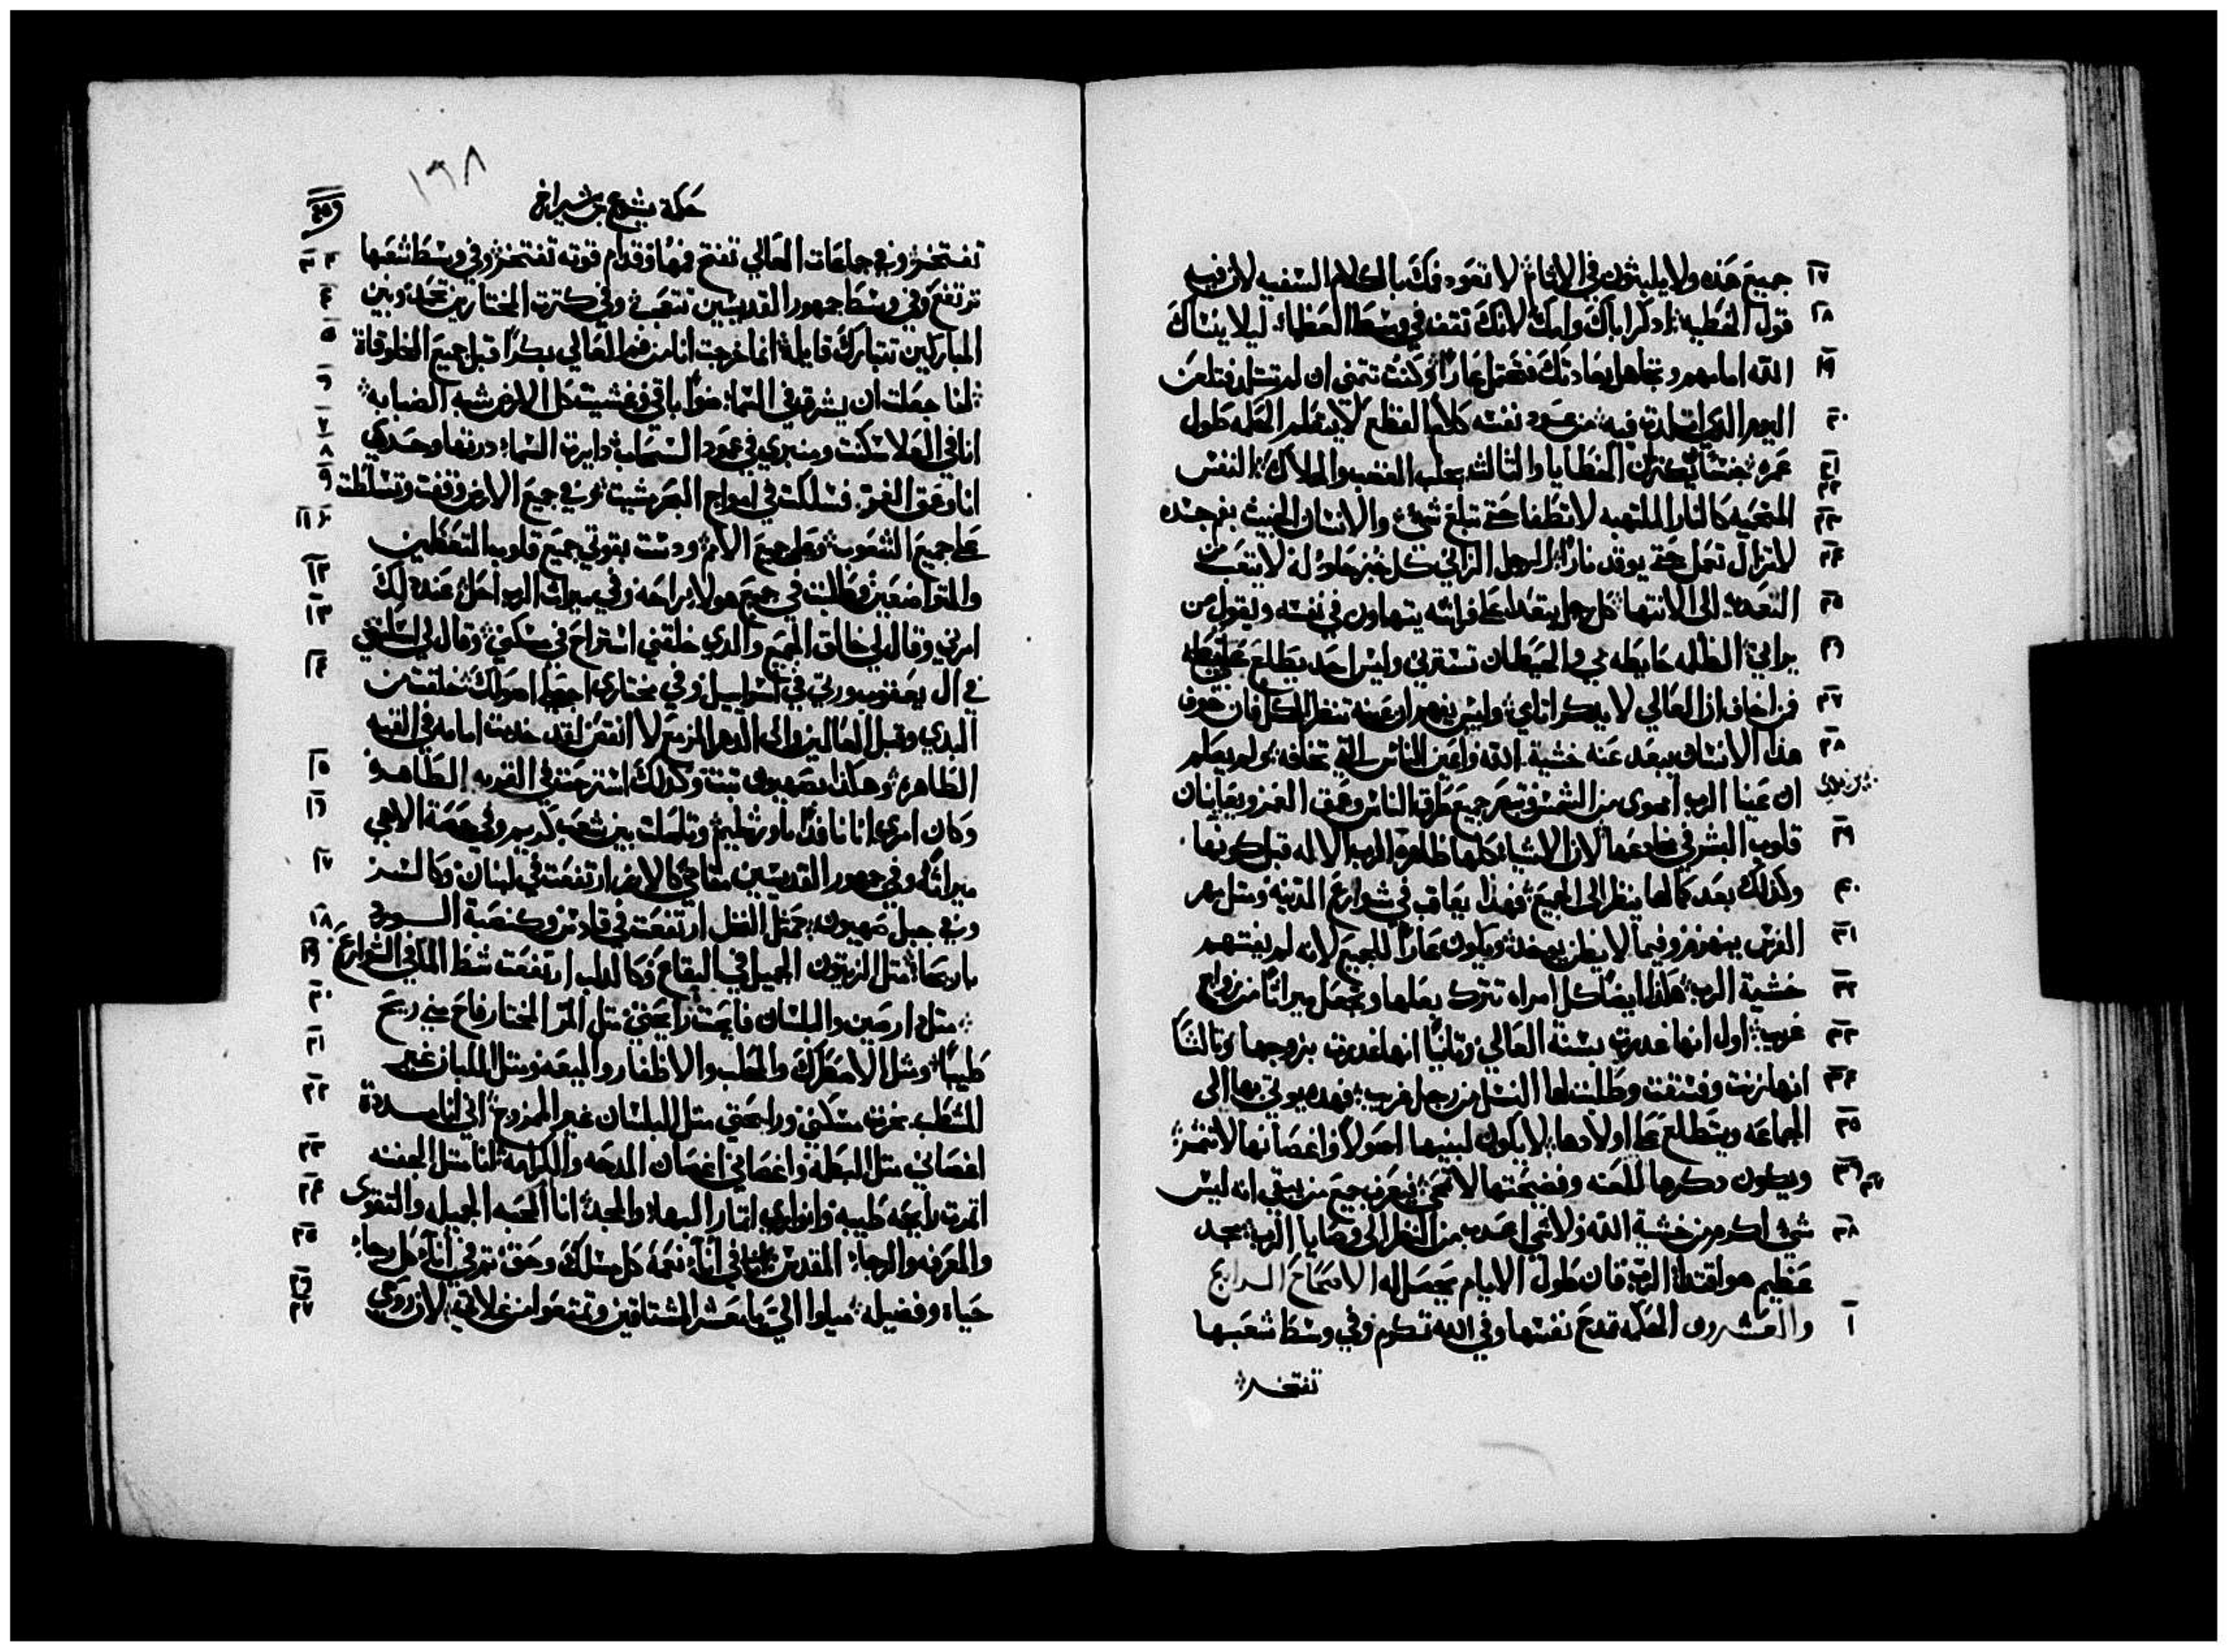 جميع هذه ولا يلبثون في الاثام لا تعود فمك بالكلام السفيه لان فيه ١٧
قول الخطيه اذكر اباك وامك لانك تقف في وسط العظما ليلا ينساك ١٨
الله امامهم وتجاهل بعادتك فتحتمل عارًا وكنت تتمني ان لم تتولد وتلعن ١٩
اليوم الذي اتولدت فيه من عود نفسه كلام الفظع لا يتعلم الحكمه طول ٢٠
عمره جنسان يكثران الخطايا والتالت يجلب الغضب والهلاك النفس ٢١ ٢٢
المتحميه كالنار الملتهبه لا تطفا حتي تبلغ شي والانسان الخبيث بفم جسده ٢٣
لا تزال تعمل حتي يوقد نارًا الرجل الزاني كل خبز حلو له لا يتعب ٢٤
التعدي الي الانتها كل رجل يتعدا علي فراشه يتهاون في نفسه ويقول من ٢٥
يراني الظلمه حايطه بي والحيطان تسترني وليس احد يطلع علي ٢٦
فمن اخاف ان العالي لا يدكر اتامي وليس يفهم ان عينه تنظر الكل فان خوف ٢٧
هذا الانسان يبعد عنه خشية الله واعين الناس التي تخافه ولم يعلم ٢٨
ان عينا الرب اضوي من الشمس وتبصر جميع طرق الناس وعمق الغمر ويعاينان
قلوب البشر في مخادعها لان الاشيا كلها ظاهره للرب الاله قبل كونها ٢٩
وكذلك بعد كمالها ينظر الي الجميع فهذا يعاقب في شوارع المدينه ومتل مهر ٣٠
الفرس ينهزم وفيما لا يظن يوخذ ويكون عارًا للجميع لانه لم يفتهم ٣١
خشية الرب هكذا ايضًا كل امراه تترك بعلها وتجعل ميراثًا من زواج ٣٢
غريب اول انها غدرت بسنة العالي وتانيًا انها غدرت بزوجها وتالتًا ٣٣
انها زنت وفسقت وطلبت لها النسل من رجل غريب فهده يوتي بها الي ٣٤
الجماعه ويتطلع علي اولادها لا يكون لبنيها اصولاً واغصانها لا تثمر ٣٥
ويكون دكرها للعنه وفضيحتها لا تمحي فيعرف جميع من يبقي انه ليس ٣٦ ٣٧
شي اكرم من خشية الله ولا شي اعدب من النظر الي وصايا الرب مجد ٣٨
عظيم هو اقتدا الرب فان طول الايام يحصل له الاصحاح الرابع
والعشرون الحكمه تمدح نفسها وفي الله تكرم وفي وسط شعبها ١
تفتخر
١٩٨
حكمة يشوع بن شيراخ
تفتخر وفي جماعات العالي تفتح فمها وقدام قوته تفتخر وفي وسط شعبها ٢ ٣
ترتفع وفي وسط جمهور القديسين تتعجب وفي كترت المختارين تحمد وبين ٤
المباركين تتبارك قايله انما خرجت انا من فم العالي بكرًا قبل جميع المخلوقاة ٥
انا جعلت ان يشرق في السما ضواً باقي وغشيت كل الارض شبه الضبابه ٦
انا في العلا سكنت ومنبري في عمود السحاب دايرت السما درتها وحدي ٧ ٨
انا وعمق الغمر فسلكت في امواج البحر مشيت وفي جميع الارض وقفت وتسلطت ٩
علي جميع الشعوب وعلي جميع الامم ودست بقوتي جميع قلوب المتعظمين ١٠ ١١
والمتواضعين وطلبت في جميع هولاء راحه وفي ميراث الرب احل عند ذلك ١٢
امرني وقال لي خالق الجميع والذي خلقني استراح في مسكني وقال لي اسكني ١٣
في ال يعقوب ورتي في اسراييل وفي مختاري اجعلي اصولك خلقت من ١٤
البدي وقبل العالمين والي الدهر المزمع لا انقص لقد خدمت امامه في القبه
الطاهره وهكذا بصهيون تبتت وكدلك استرحت في القريه الطاهره ١٥
وكان امري انا نافدًا باورشليم وتاصلت بين شعب كريم وفي حصة الالهي ١٦
ميراثه وفي جمهور القديسين مقامي كالارز ارتفعت في لبنان وكالسرو ١٧
وفي جبل صهيون كمثل النخل ارتفعت في قادس وكنصبة الورد ١٨
باريحا متل الزيتون الجميل في البقاع وكالدلب ارتفعت شط الما في الشوارع ١٩
متل دارصين والبلسان فاحت رايحتي متل المر المختار فاح مني ريح ٢٠
طيبًا ومثل الاصطرك والحلب والاظفار والميعه ومتل اللبان غير ٢١
المشطب بخرت مسكني ورايحتي متل البلسان غير الممزوج اني انا مددت ٢٢
اغصاني مثل البطمه واغصاني اغصان المدحه والكرامه انا متل الجفنه ٢٣
اثمرت رايحه طيبه وانواري اتمار البها والمجد انا ام المحبه الجميله والتقوى ٢٤
والمعرفه والرجا المقدس انا في اناء نعمة كل مسلك وحق تمر في اناء كل رجاء ٢٥
حياه وفضيله ميلوا الي يا معشر المشتاقين وتمتعوا من غلاتي لان روحي ٢٦ ٢٧